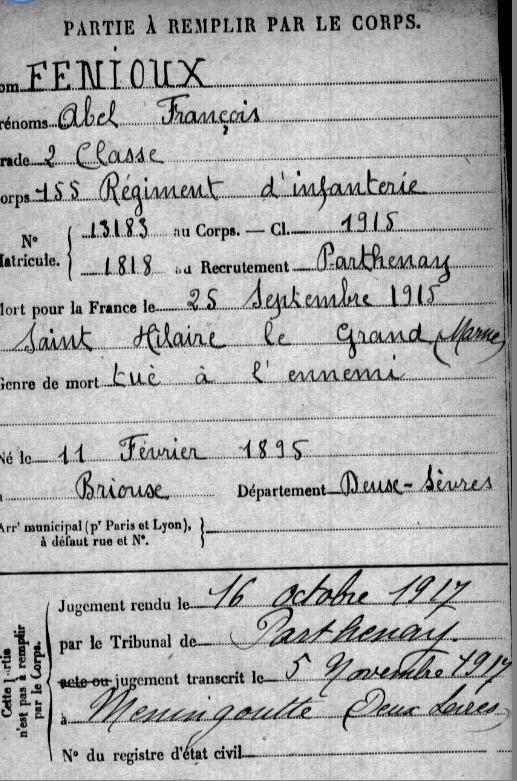 PARTIE À REMPLIR PAR LE CORPS.
om FENIOUX
rénoms Abel François
rade 2 Classe
orps 155 Régiment d'infanterie
N° Matricule. { 13183 au Corps. — Cl. 1915
1818 au Recrutement Parthenay
Mort pour la France le 25 Septembre 1915
Saint Hilaire le Grand (Marne)
Genre de mort tuè à l'ennemi
Né le 11 Février 1895
Briouse Département Deuse-Sèvres
Arrt municipal (pr Paris et Lyon), }
à défaut rue et N°.
Cette partie n'est pas à remplir par le Corps.
Jugement rendu le 16 octobre 1917
par le Tribunal de Parthenay.
acte ou jugement transcrit le 5 Novembre 1917
à Menigoutte (Deux Sèvres)
N° du registre d'état civil